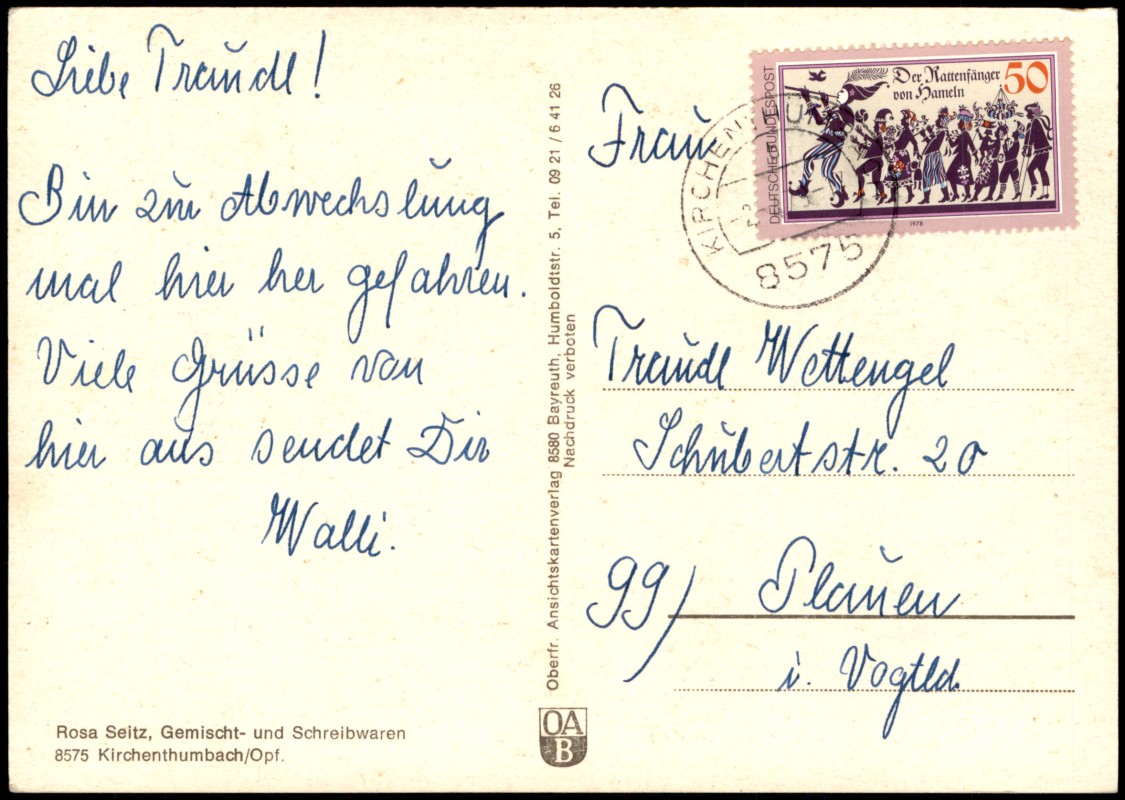 Liebe Traudl!
Bin zur Abwechslung
mal hier her gefahren.
Viele Grüsse von
hier aus sendet Dir
Walli.
Rosa Seitz, Gemischt- und Schreibwaren
8575 Kirchenthumbach/Opf.
Oberfr. Ansichtskartenverlag 8580 Bayreuth, Humboldtstr. 5, Tel. 09 21 / 6 41 26
Nachdruck verboten
OA
B
DEUTSCHE BUNDESPOST
Der Rattenfänger
von Hameln
50
1978
8575
Frau
Traudl Wettengel
Schubertstr. 20
99) Plauen
i. Vogtld.